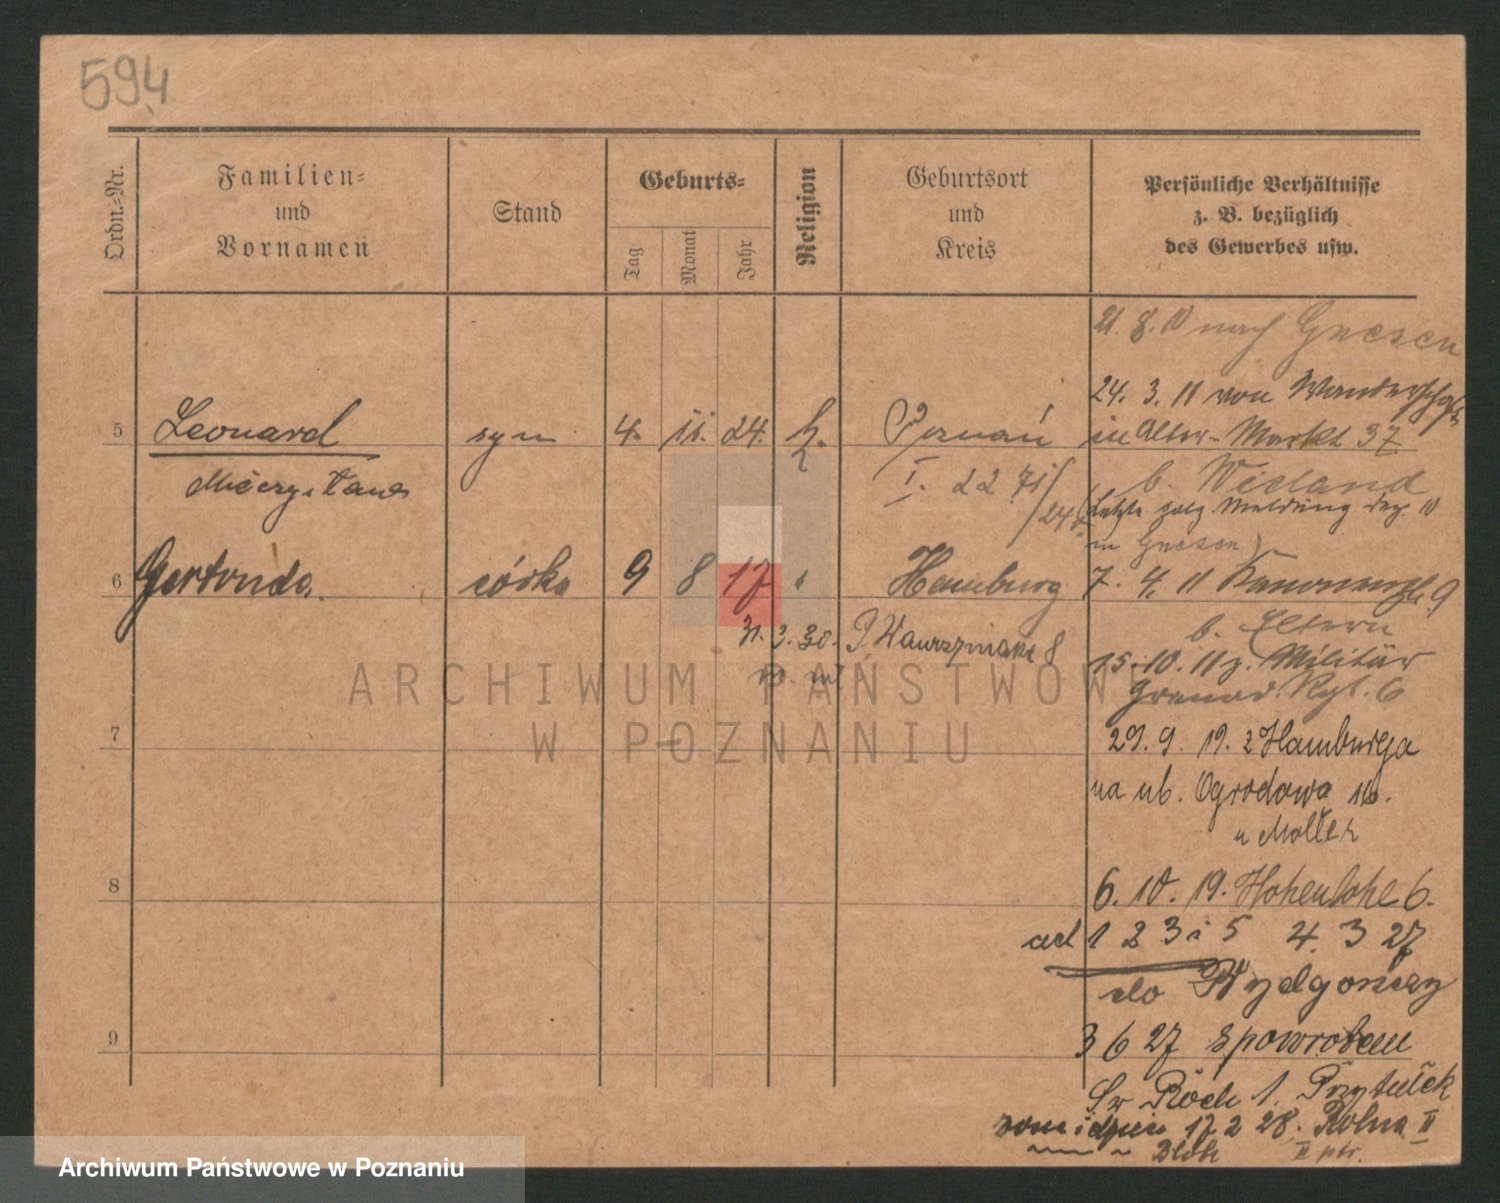 594
Ordn.-Nr.
Familien-
und
Vornamen
Stand
Geburts-
Tag
Monat
Jahr
Religion
Geburtsort
und
Kreis
Persönliche Verhältnisse
z. B. bezüglich
des Gewerbes usw.
21. 8. 10 nach Gnesen
24. 3. 11 von Wanderschaft
5 Leonard syn 4. 11. 24. k. Poznań in Alter-Markt 37
I. 22 71/24 b. Wieland
Letzte polz Meldung 10
in Gnesen)
6 Gertruda. córka 9 8 17 Hamburg 7. 4. 11 9
b. Eltern
31. 3. 30. P. Wawrzyniaka 8
15. 10. 11 z. Militär
Grenad. Rgt. 6
7
29. 9. 19. z Hamburga
na ul. Ogrodowa 16.
u Molter
8
6. 10. 19. Hohenlohe 6.
ad 1 2 3 i 5 4. 3 27
do Bydgoszczy
9
3 6 27 spowrotem
Św Roch 1. Przytułek
17 2 28. Rolna II
II ptr.
ARCHIWUM PAŃSTWOWE
W POZNANIU
Archiwum Państwowe w Poznaniu